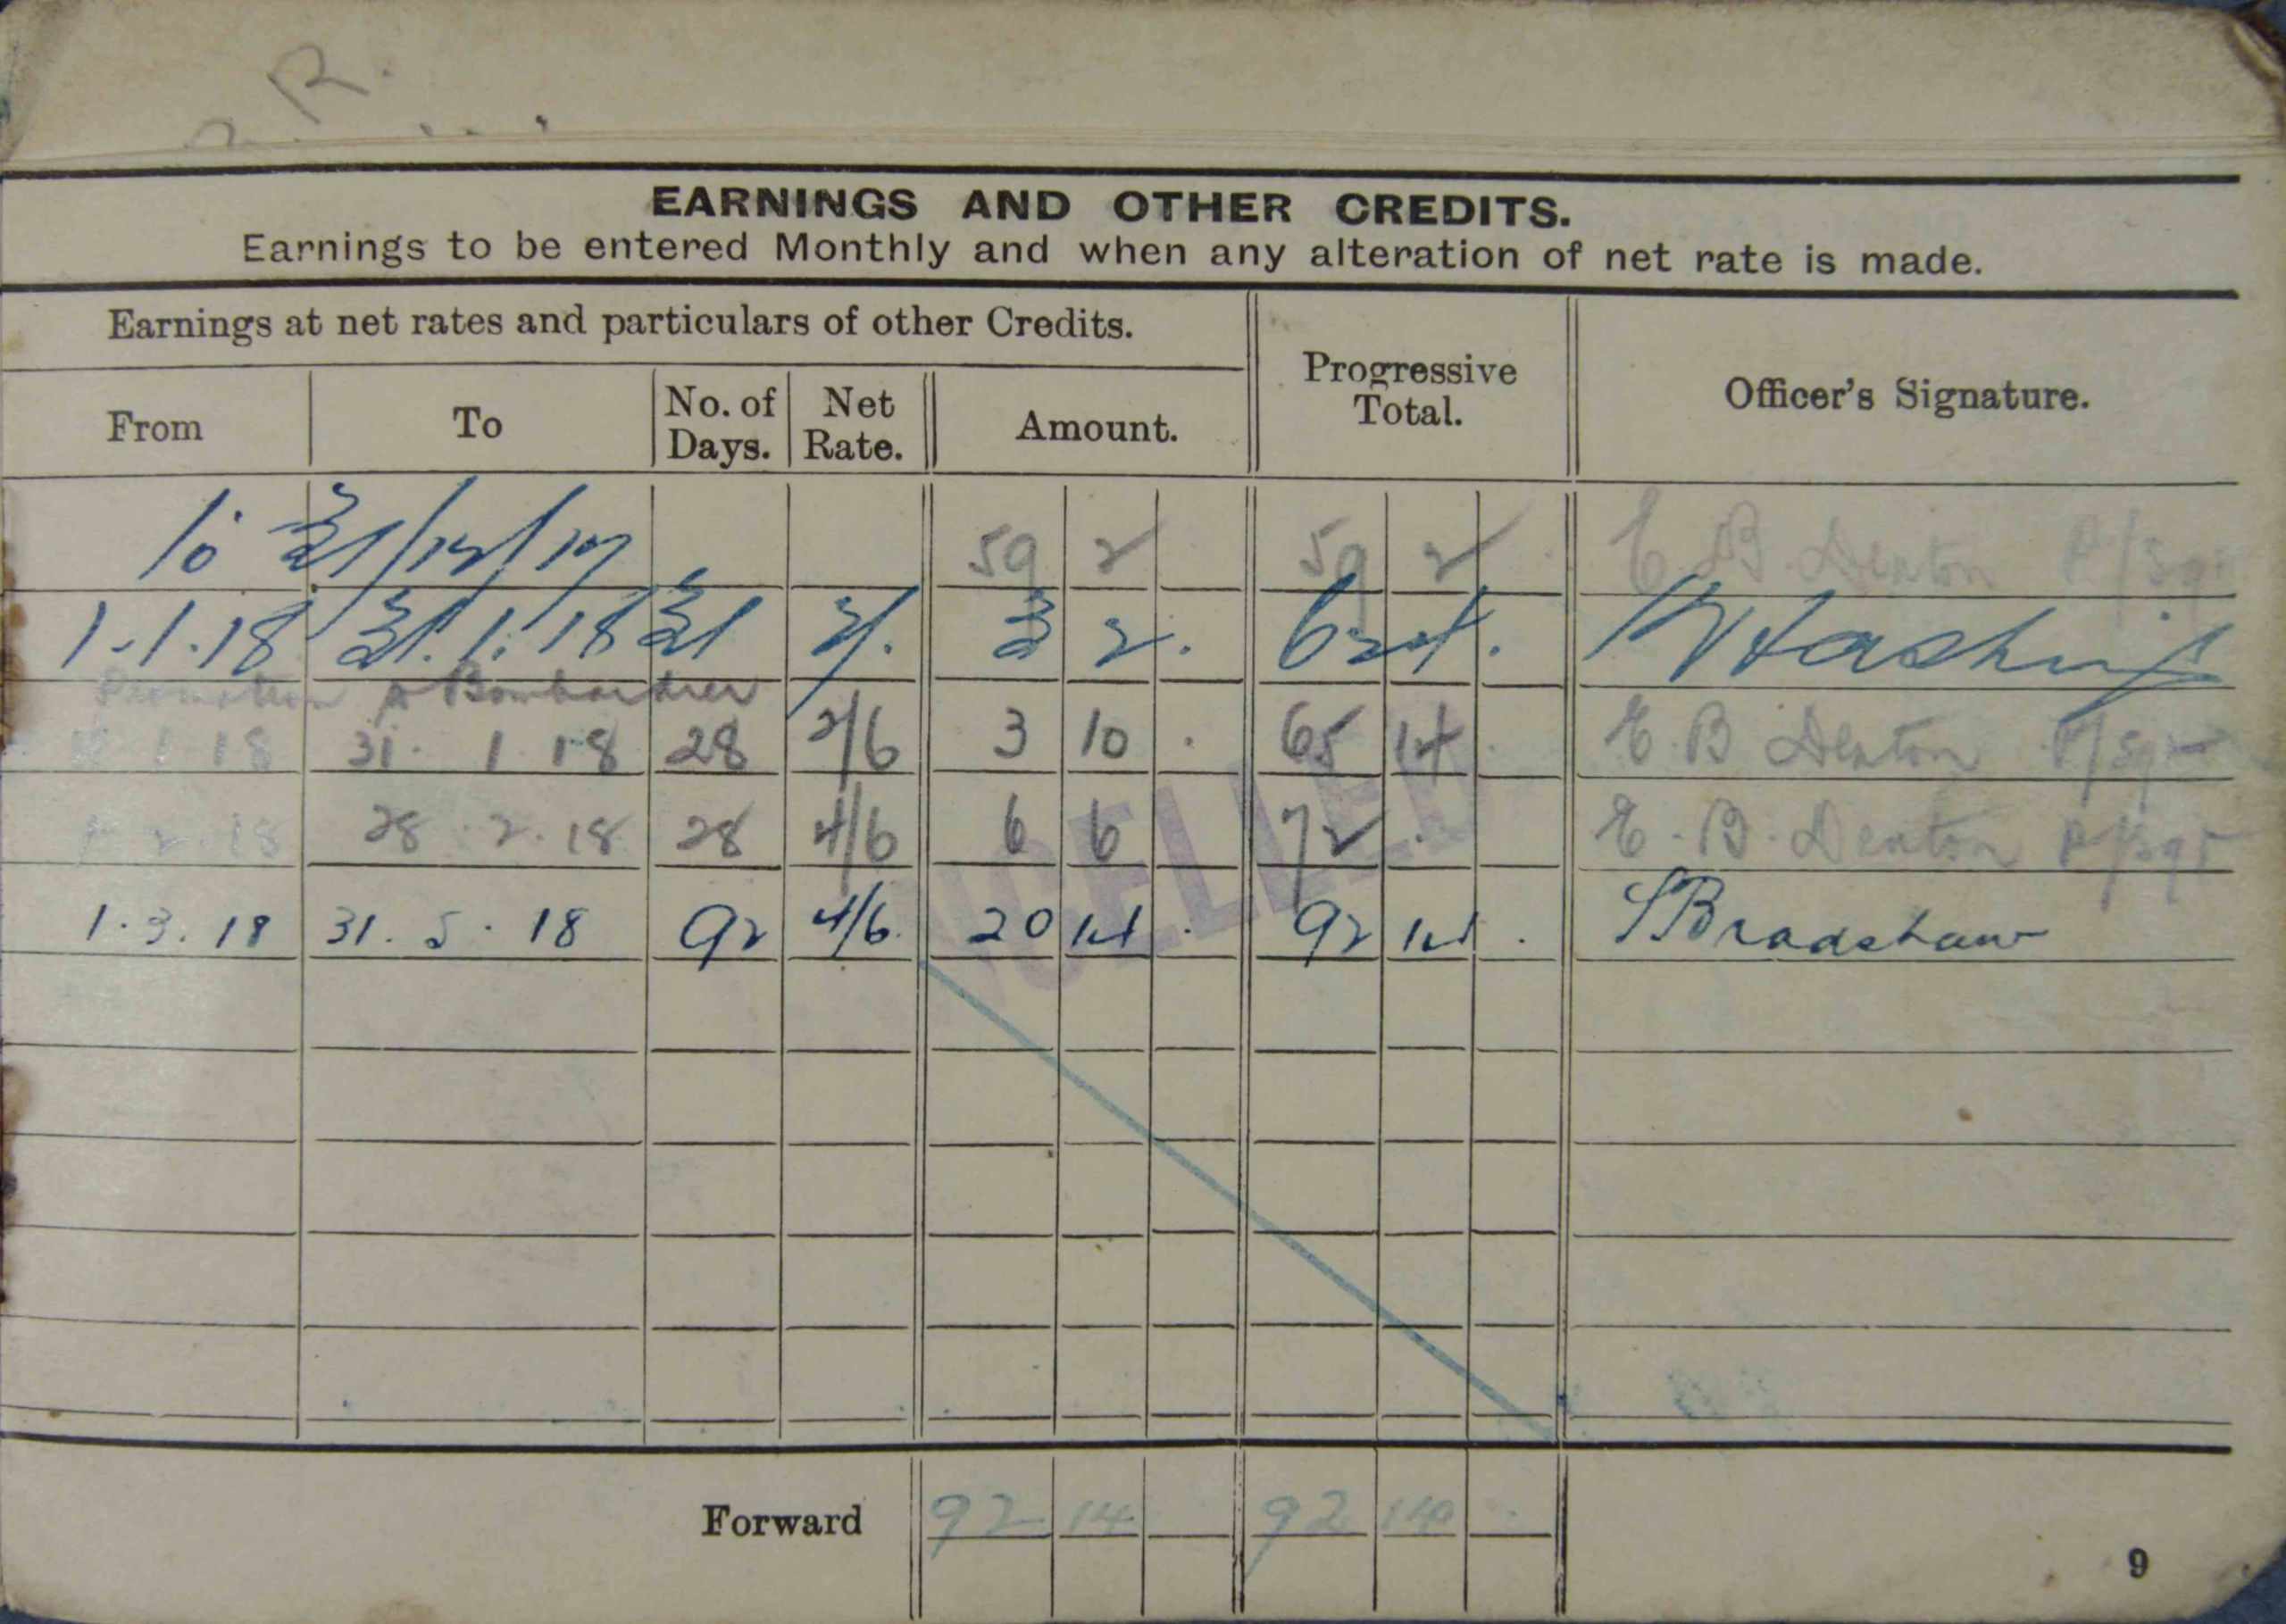 R.
EARNINGS AND OTHER CREDITS.
Earnings to be entered Monthly and when any alteration of net rate is made.
Earnings at net rates and particulars of other Credits.
From To No. of Days. Net Rate. Amount. Progressive Total. Officer's Signature.
To 31/12/17 59 2 59 2 E. B. Denton
1.1.18 31.1.18 31 2/. 3 2 . 62 4 .
Promotion to Bombardier
1 18 31. 1 18 28 2/6 3 10 . 65 14 . E. B Denton
2.18 28.2.18 28 4/6 6 6 72 . E. B. Denton
1.3.18 31.5.18 92 4/6 20 14 . 92 14 . Bradshaw
CANCELLED
Forward 92 14 92 14 .
9